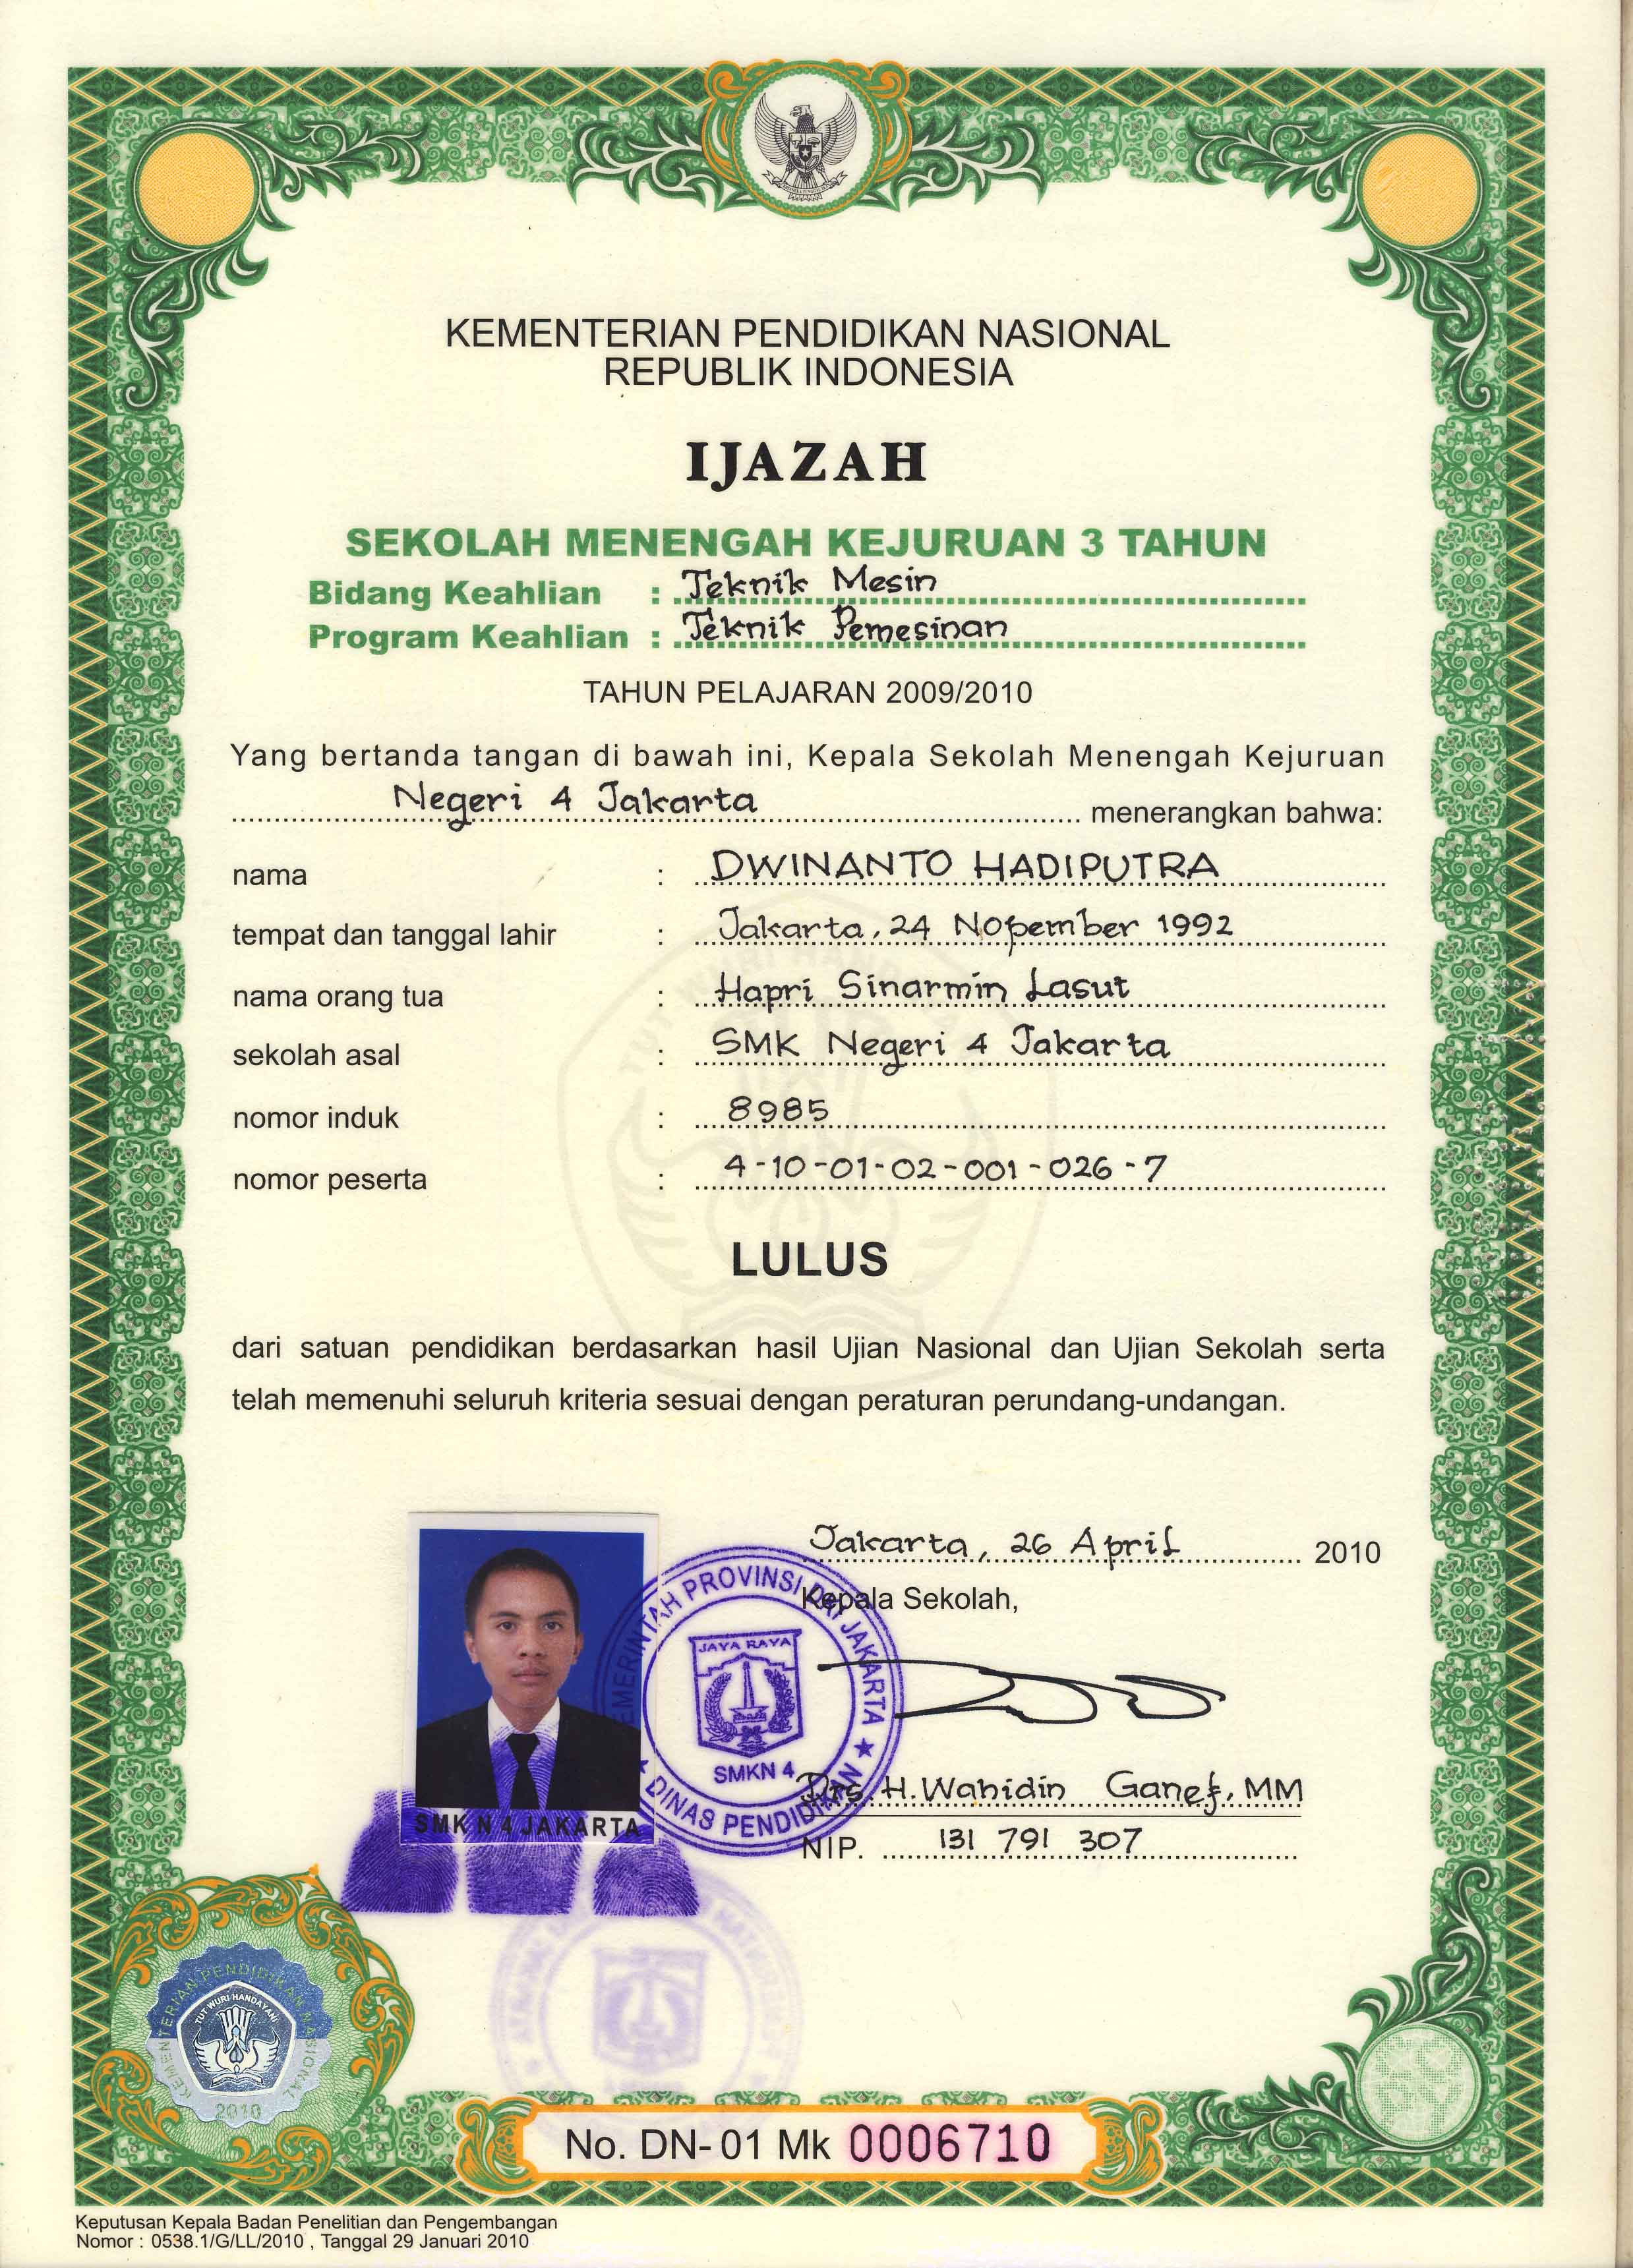 KEMENTERIAN PENDIDIKAN NASIONAL
REPUBLIK INDONESIA
IJAZAH
SEKOLAH MENENGAH KEJURUAN 3 TAHUN
Bidang Keahlian : Teknik Mesin
Program Keahlian : Teknik Pemesinan
TAHUN PELAJARAN 2009/2010
Yang bertanda tangan di bawah ini, Kepala Sekolah Menengah Kejuruan
Negeri 4 Jakarta menerangkan bahwa:
nama : DWINANTO HADIPUTRA
tempat dan tanggal lahir : Jakarta, 24 Nopember 1992
nama orang tua : Hapri Sinarmin Lasut
sekolah asal : SMK Negeri 4 Jakarta
nomor induk : 8985
nomor peserta : 4-10-01-02-001-026-7
TUT WURI HANDAYANI
LULUS
dari satuan pendidikan berdasarkan hasil Ujian Nasional dan Ujian Sekolah serta
telah memenuhi seluruh kriteria sesuai dengan peraturan perundang-undangan.
Jakarta, 26 April 2010
Kepala Sekolah,
PEMERINTAH PROVINSI DKI JAKARTA
JAYA RAYA
SMKN 4
DINAS PENDIDIKAN
SMK N 4 JAKARTA
Drs. H. Wahidin Ganef, MM
NIP. 131 791 307
KEMENTERIAN PENDIDIKAN NASIONAL
TUT WURI HANDAYANI
2010
No. DN-01 Mk 0006710
Keputusan Kepala Badan Penelitian dan Pengembangan
Nomor : 0538.1/G/LL/2010 , Tanggal 29 Januari 2010